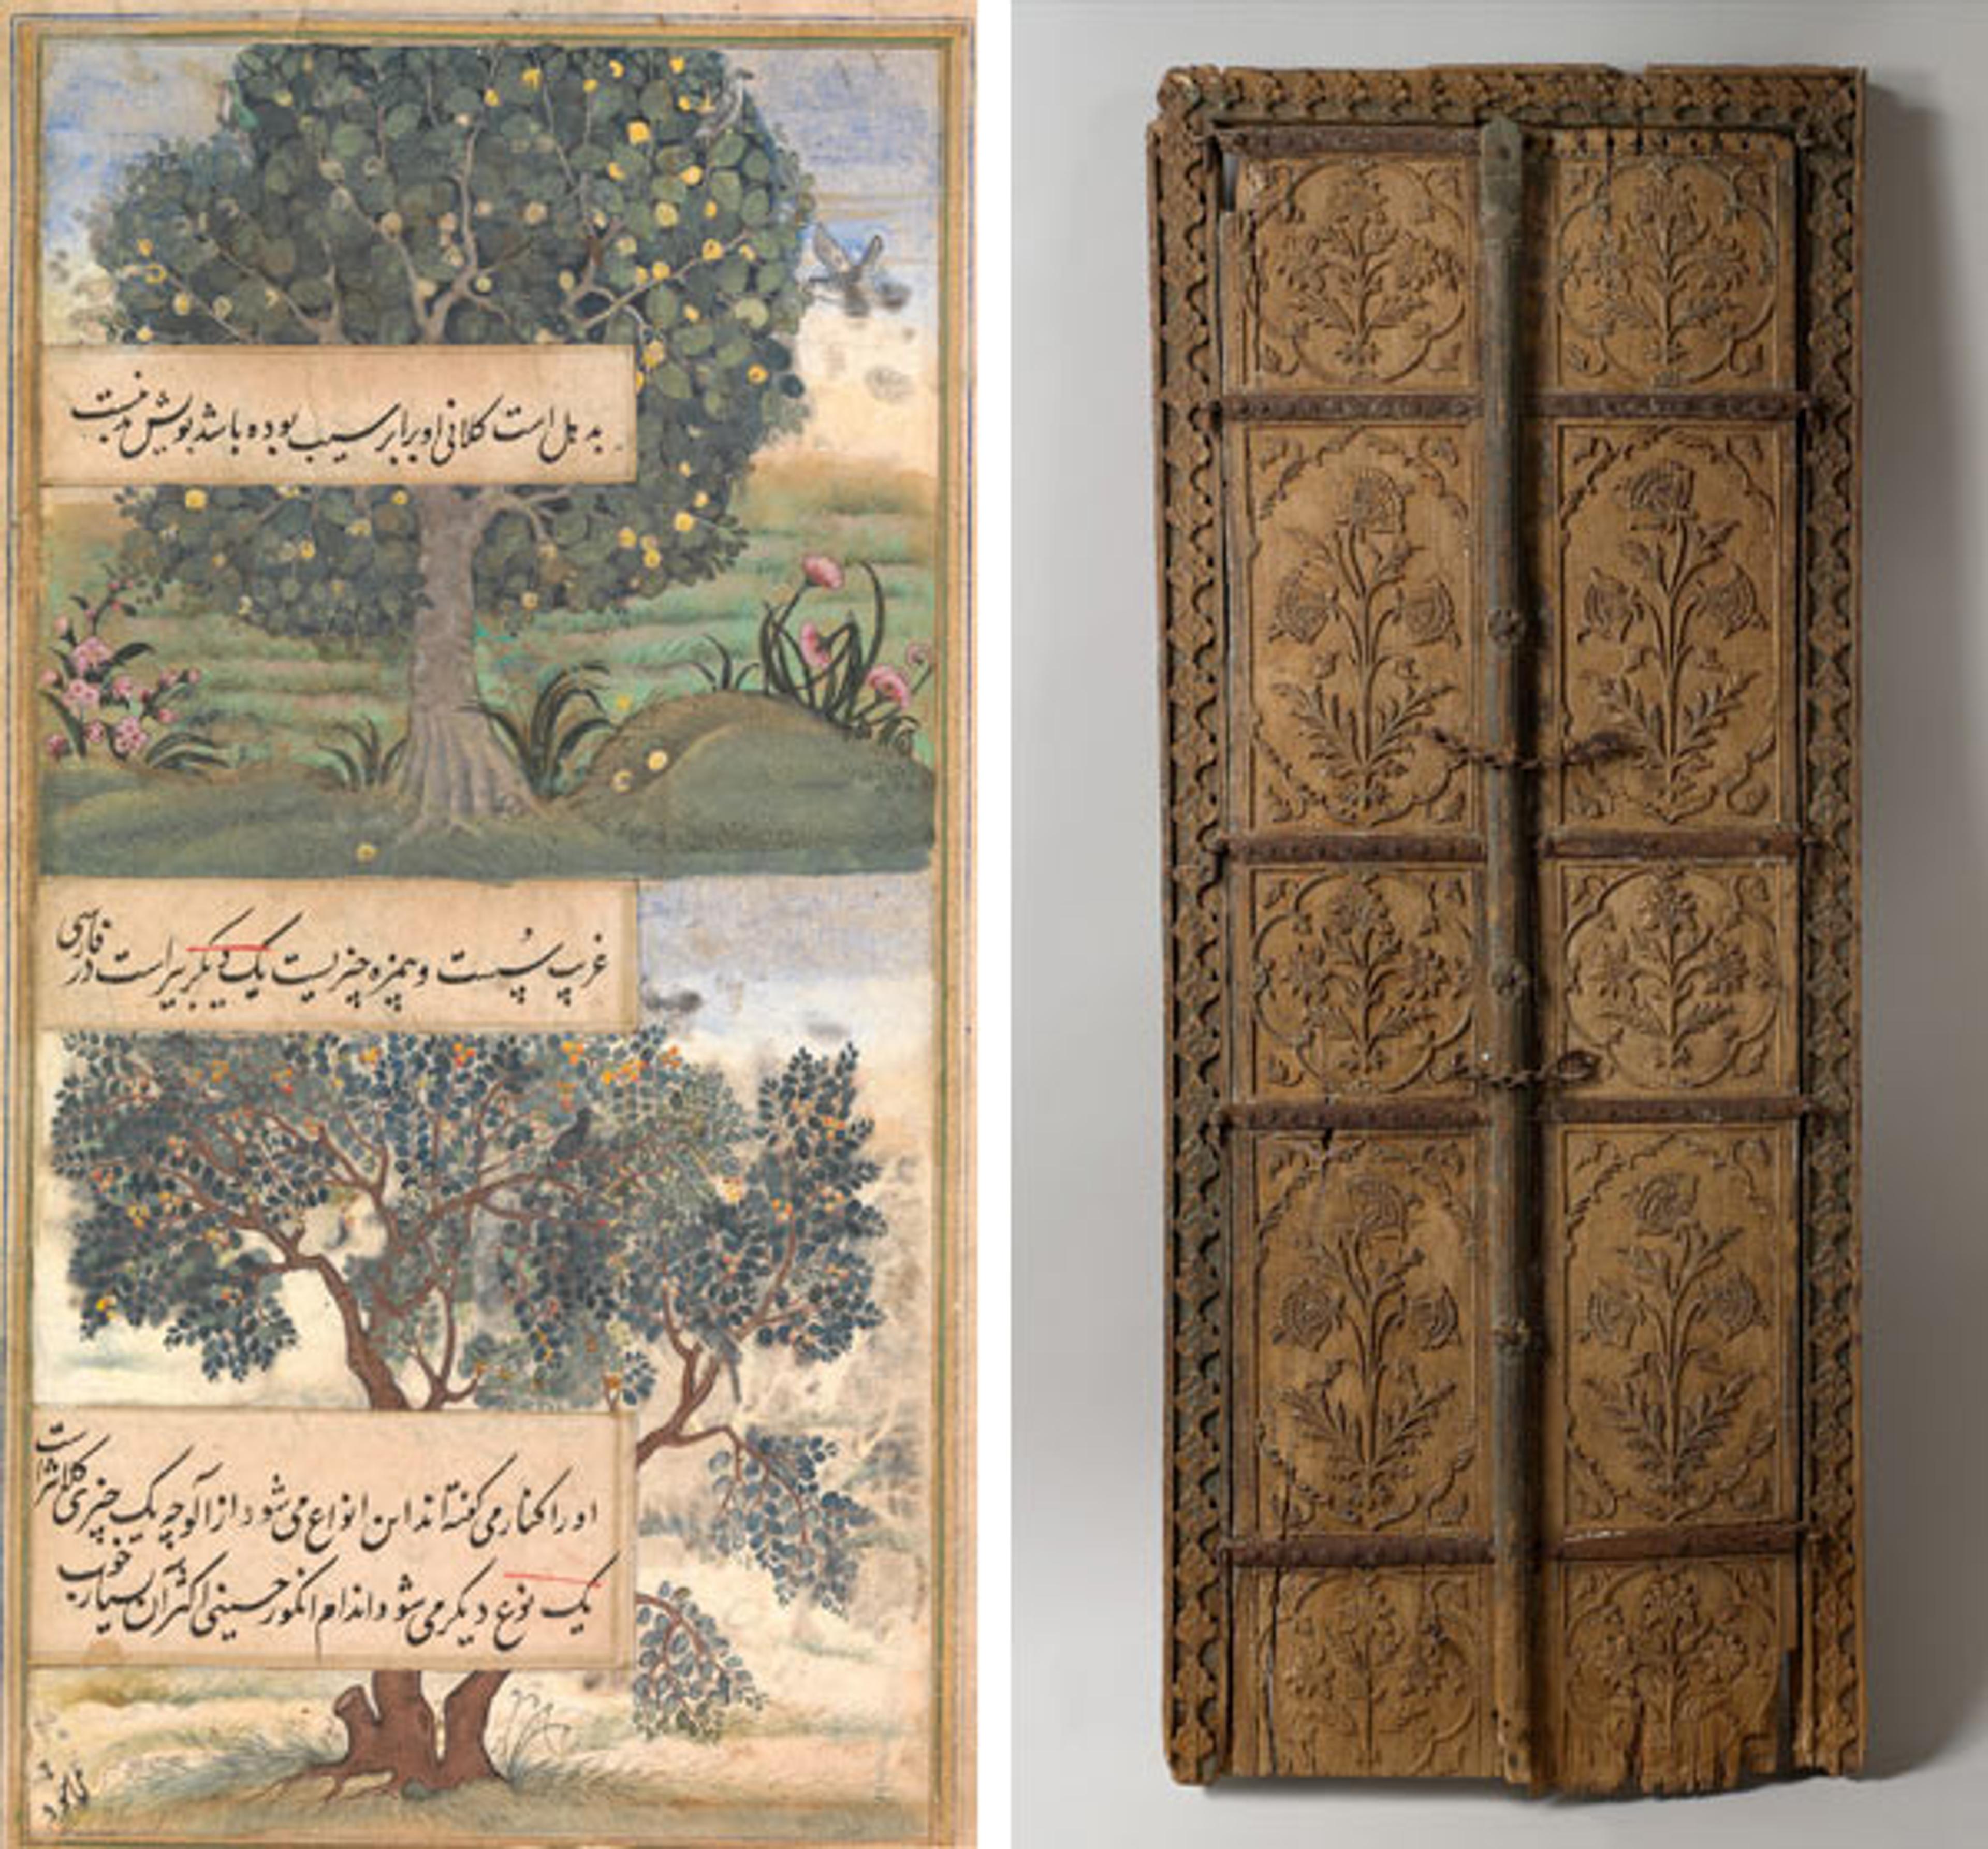 بدهل است کلانی او برابر سیب بوده باشد بویش بد نیست
غریب پُسست و بیمزه چیزیست یک دیگر بیر است در فارسی
او را کنار می گفته اند این انواع می شود از آلوچه یک چیزی کلانتر است
یک نوع دیگر می شود اندام انگور حسینی اکثر آن بسیار خوب